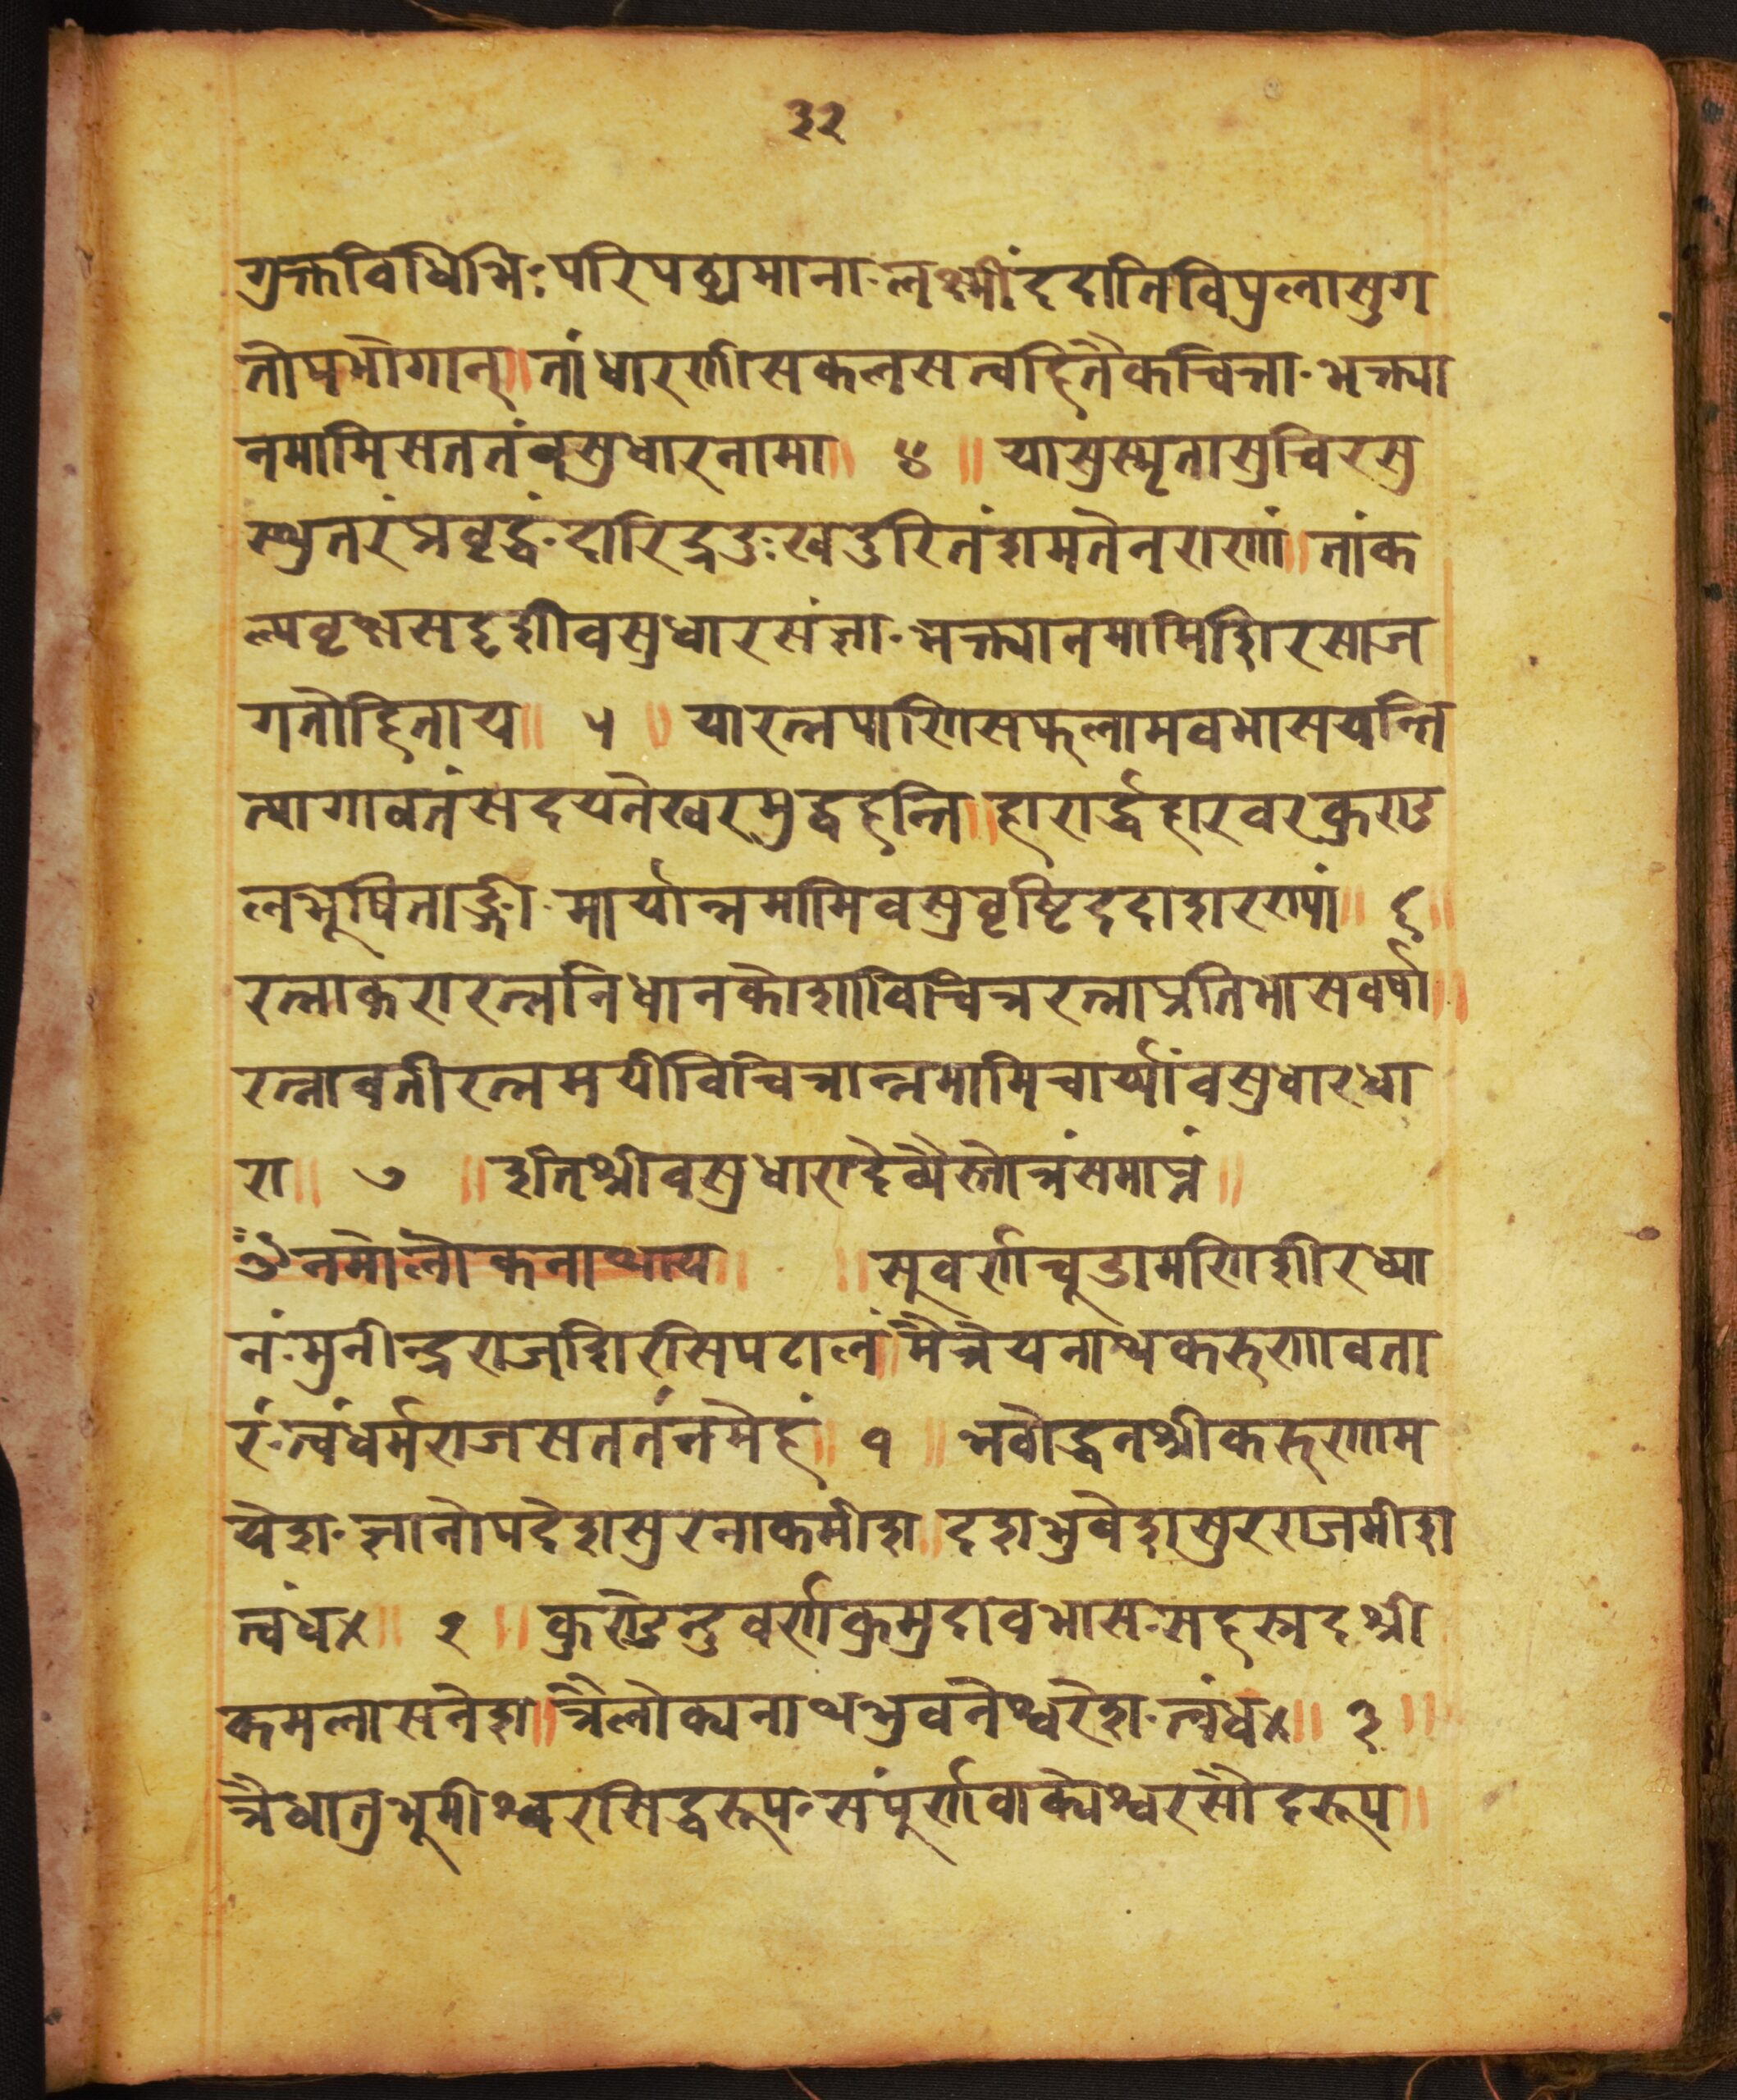 ३२
गुक्तविधिभिः परिपठ्यमाना॰ लक्ष्मीं ददाति विपुलासुग
तोपभोगान् ॥ तां धारणी सकलसत्वहितैकचित्ता॰ भक्त्या
नमामि सततं वसुधारनामा ॥ ४ ॥ या सुस्मृता सुचिरसु
स्थुतरं प्रवृद्धं॰ दारिद्रदुःखदुरितं शमते नराणां ॥ तां क
ल्पवृक्षसदृशी वसुधारसंज्ञा॰ भक्त्या नमामि शिरसा ज
गतो हिताय ॥ ५ ॥ या रत्नपाणि सफलामवभासयन्ति
त्यागावतंसदयतेखरमुद्वहन्ति ॥ हारार्द्धहारवरकुण्ड
लभूषिताङ्गी॰ मार्यान्नमामि वसुवृष्टिददाशरण्यां ॥ ६ ॥
रत्नाकरा रत्ननिधानकोशा विचित्ररत्ना प्रतिभासवर्षा ॥
रत्नावती रत्नमयी विचित्रान्नमामि चार्य्यां वसुधारधा
रा ॥ ७ ॥ इति श्रीवसुधारादेव्यै स्तोत्रं समाप्तं ॥
ॐ नमो लोकनाथाय ॥ ॥ सुवर्णचूडामणिशीरध्या
नं॰ मुनीन्द्रराजशिरसिपटालं ॥ मैत्रेयनाथकरुणावता
रं॰ त्वं धर्मराज सततं नमेहं ॥ १ ॥ भवोद्धनश्रीकरुणाम
येश॰ ज्ञानोपदेशसुरनाकमीश ॥ दशभुवेशसुरराजमीश
त्वं ध४ ॥ २ ॥ कुण्डेन्दुवर्णकुमुदावभास॰ सहस्रदश्री
कमलासनेश ॥ त्रैलोक्यनाथभुवनेश्वरेश॰ त्वं ध४ ॥ ३ ॥
त्रैधातुभूमीश्वरसिद्धरूप॰ संपुर्णवाक्येश्वरसौदरूप ॥